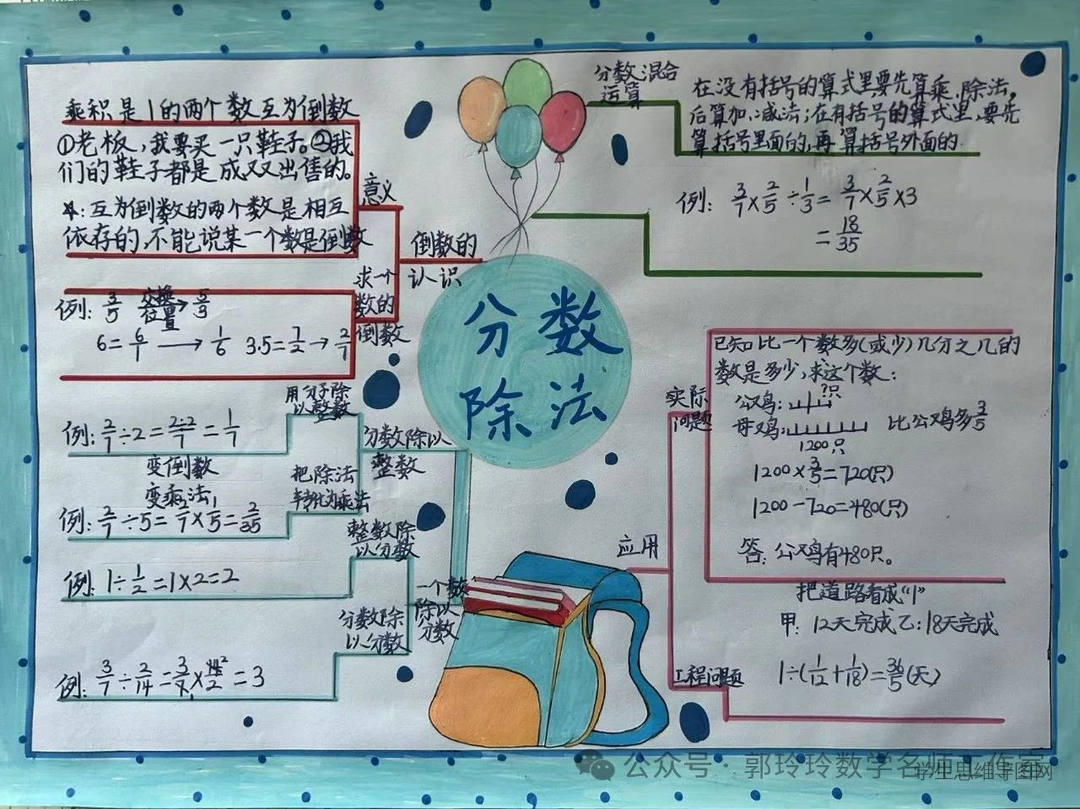 分数
除法
倒数的
认识
意义
乘积是1的两个数互为倒数
①老板,我要买一只鞋子。②我
们的鞋子都是成双出售的。
互为倒数的两个数是相互
依存的,不能说某一个数是倒数
求一个
数的
倒数
例: 3/5 交换位置→ 5/3
6=6/1 → 1/6 3.5=7/2→2/7
分数除以
整数
用分子除
以整数
例:2/7÷2=2÷2/7=1/7
把除法
转化为乘法
变倒数
变乘法
例:2/7÷5=2/7×1/5=2/35
一个数
除以
分数
整数除
以分数
例:1÷1/2=1×2=2
分数除
以分数
例:3/7÷2/14=3/7×14/2=3
分数混合
运算
在没有括号的算式里要先算乘、除法,
后算加、减法;在有括号的算式里,要先
算括号里面的,再算括号外面的.
例:3/7×2/5÷1/3=3/7×2/5×3
=18/35
应用
实际
问题
已知比一个数多(或少)几分之几的
数是多少,求这个数:
公鸡: ?只
母鸡: 比公鸡多3/5
1200只
1200×3/5=720(只)
1200-720=480(只)
答:公鸡有480只。
工程问题
把道路看成“1”
甲:12天完成 乙:18天完成
1÷(1/12+1/18)=36/5(天)
公众号·郭玲玲数学名师工作室
学生思维导图网